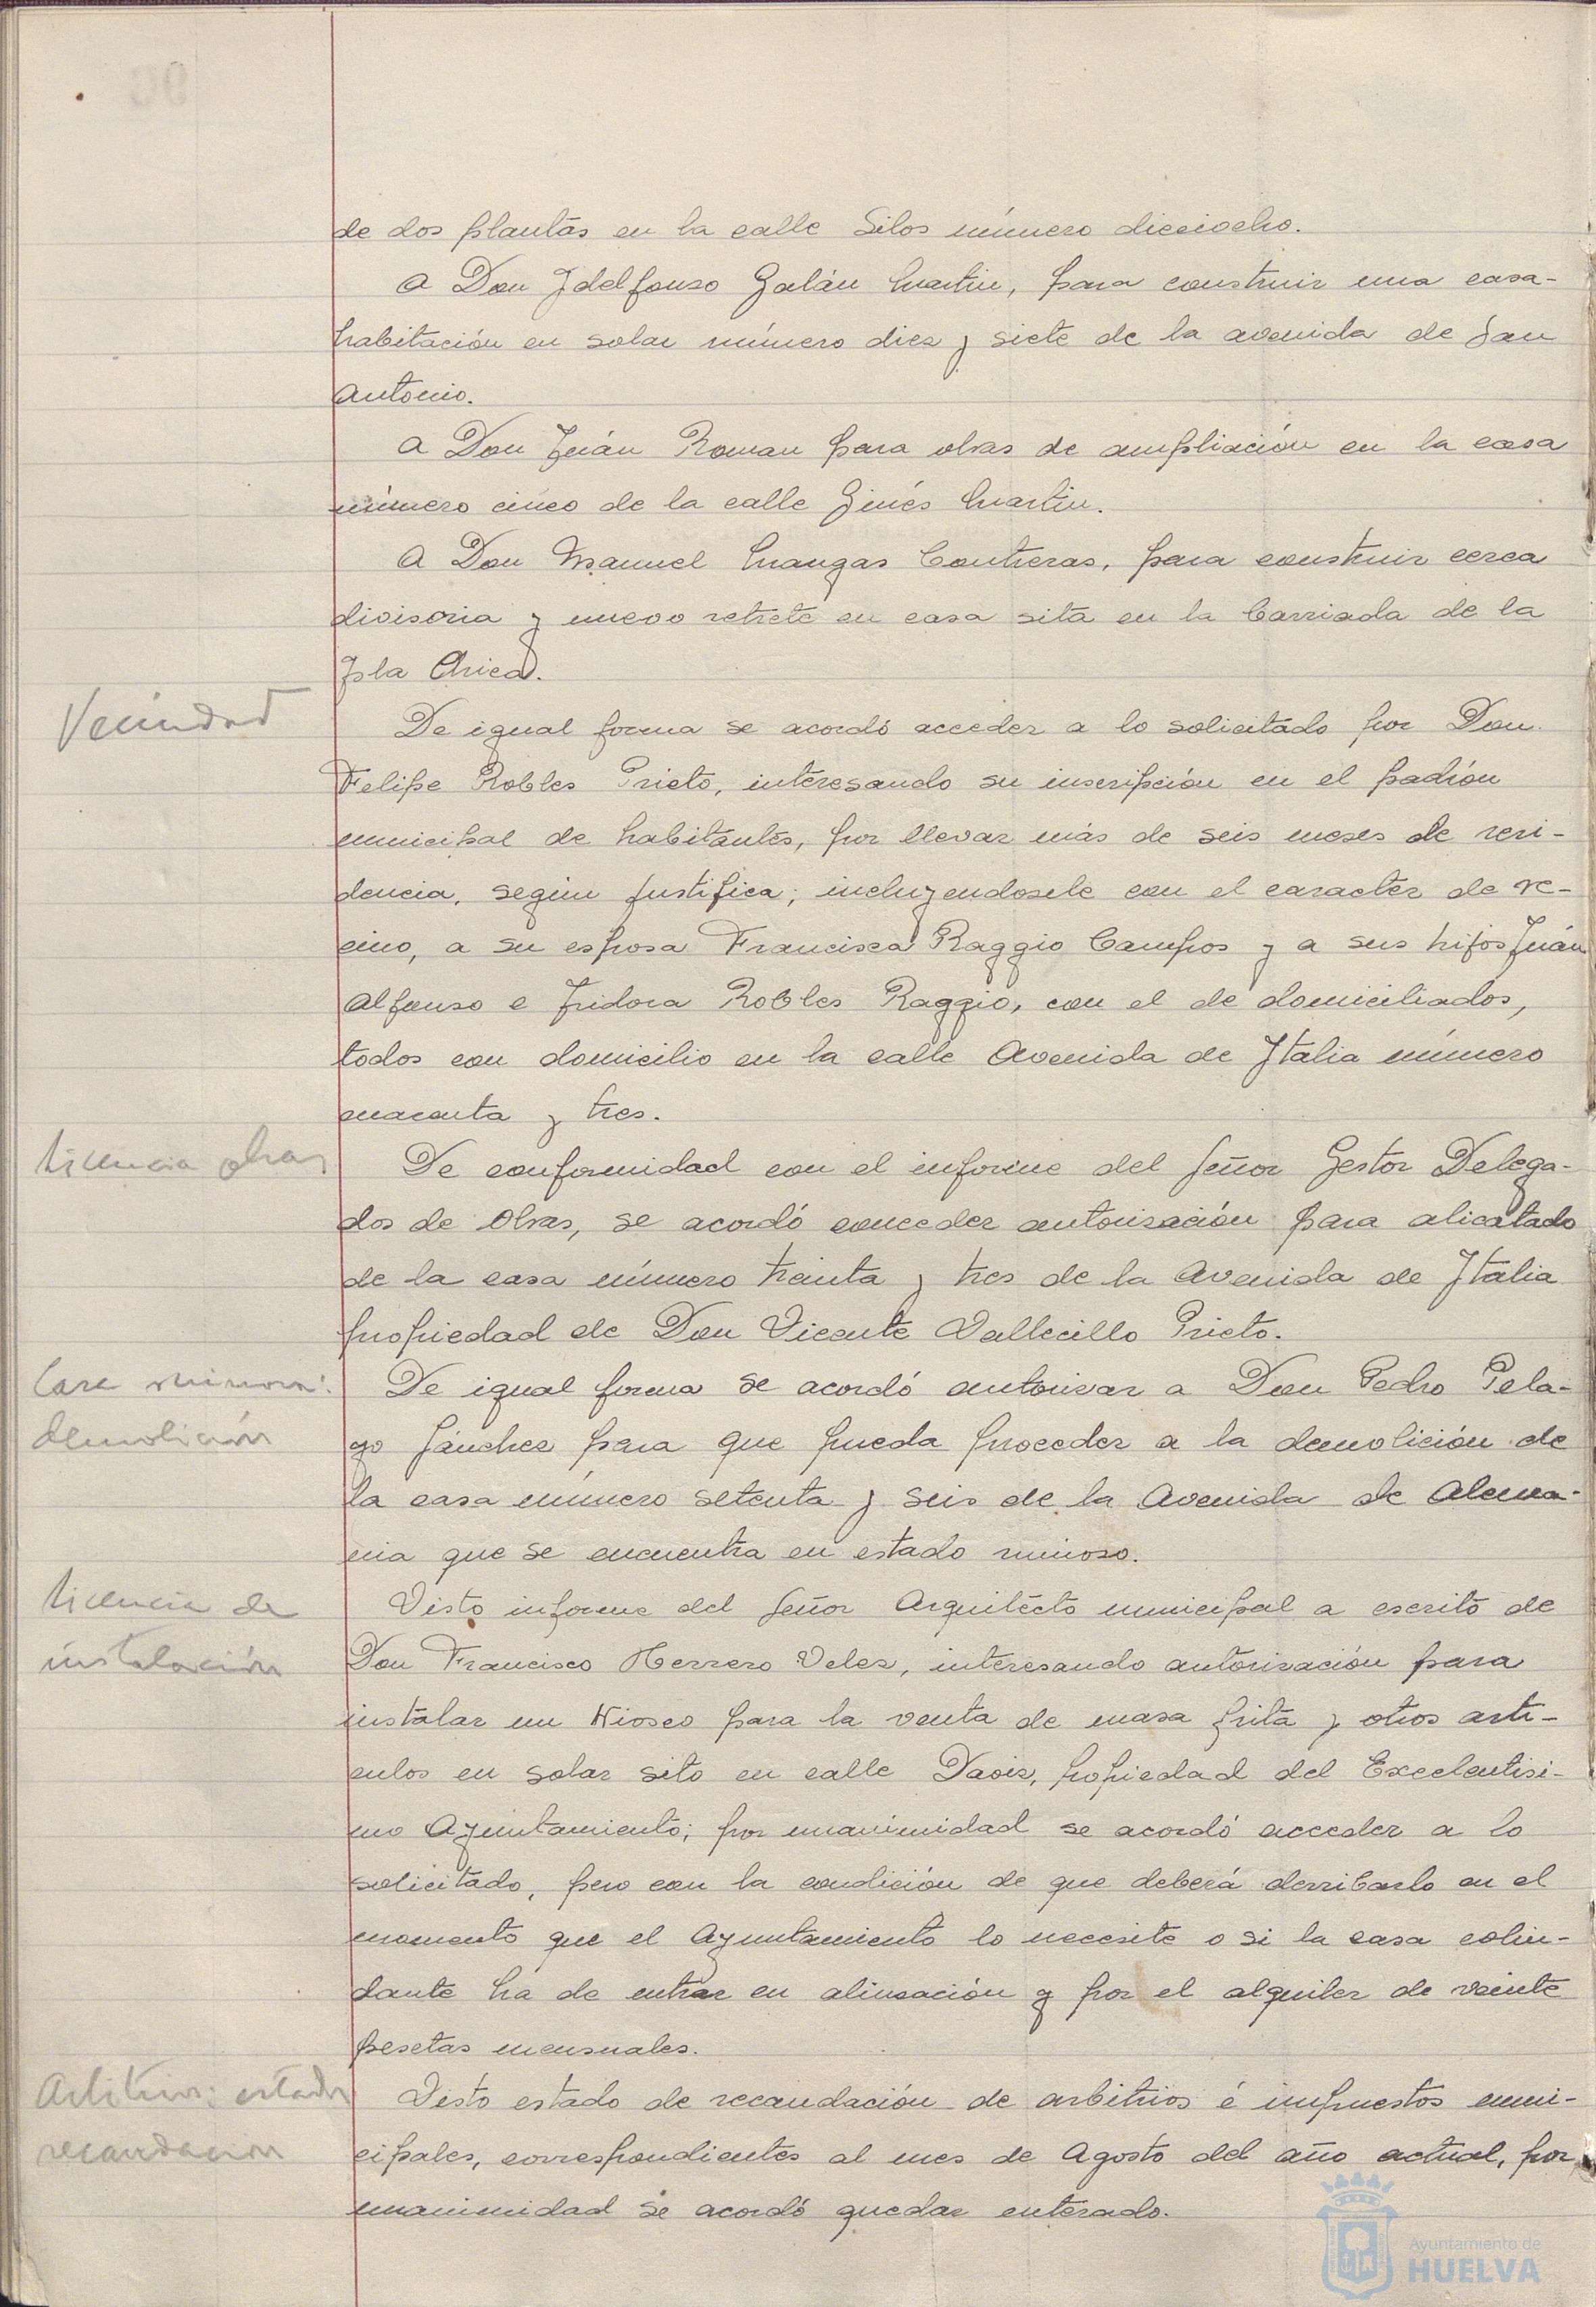 de dos plantas en la calle Silos número dieciocho.
A Don Ildelfonso Galán Martin, para construir una casa-
habitación en solar número diez y siete de la avenida de San
Antonio.
A Don Juán Roman para obras de ampliación en la casa
número cinco de la calle Ginés Martin.
A Don Manuel Mangas Contreras, para construir cerca
divisoria y nuevo retrete en casa sita en la barriada de la
Isla Chica.
Vecindad
De igual forma se acordó acceder a lo solicitado por Don
Felipe Robles Prieto, interesando su inscripción en el padrón
municipal de habitantes, por llevar más de seis meses de resi-
dencia, según justifica; incluyendosele con el caracter de ve-
cino, a su esposa Francisca Raggio Campos y a sus hijos Juán
Alfonso e Isidora Robles Raggio, con el de domiciliados,
todos con domicilio en la calle Avenida de Italia número
cuarenta y tres.
Licencia obras
De conformidad con el informe del Señor Gestor Delega-
dos de Obras, se acordó conceder autorización para alicatado
de la casa número treinta y tres de la Avenida de Italia
propiedad de Don Vicente Vallecillo Prieto.
Casa ruinosa:
demolición
De igual forma se acordó autorizar a Don Pedro Pela-
yo Sánchez para que pueda proceder a la demolición de
la casa número setenta y seis de la Avenida de Alema-
nia que se encuentra en estado ruinoso.
Licencia de
instalación
Visto informe del Señor Arquitecto municipal a escrito de
Don Francisco Herrero Velez, interesando autorización para
instalar un Kiosco para la venta de masa frita y otros artí-
culos en solar sito en calle Daoiz, propiedad del Excelentísi-
mo Ayuntamiento; por unanimidad se acordó acceder a lo
solicitado, pero con la condición de que deberá derribarlo en el
momento que el Ayuntamiento lo necesite o si la casa colin-
dante ha de entrar en alineación y por el alquiler de veinte
pesetas mensuales.
Arbitrios: estado
recaudación
Visto estado de recaudación de arbitrios é impuestos muni-
cipales, correspondientes al mes de Agosto del año actual, por
unanimidad se acordó quedar enterado.
Ayuntamiento de
HUELVA